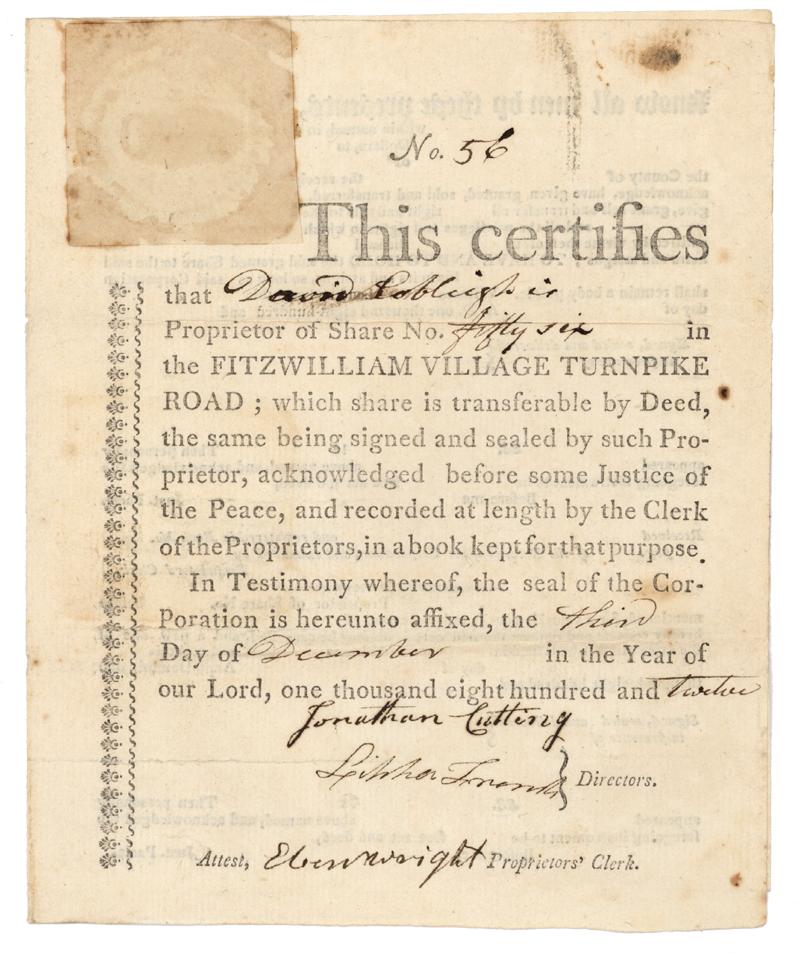 No. 56
This certifies
that David Cobleigh is
Proprietor of Share No. fifty six in
the FITZWILLIAM VILLAGE TURNPIKE
ROAD ; which share is transferable by Deed,
the same being signed and sealed by such Pro-
prietor, acknowledged before some Justice of
the Peace, and recorded at length by the Clerk
of the Proprietors, in a book kept for that purpose.
In Testimony whereof, the seal of the Cor-
Poration is hereunto affixed, the third
Day of December in the Year of
our Lord, one thousand eight hundred and twelve
Jonathan Cutting
Directors.
Attest, Eben Wright Proprietors' Clerk.